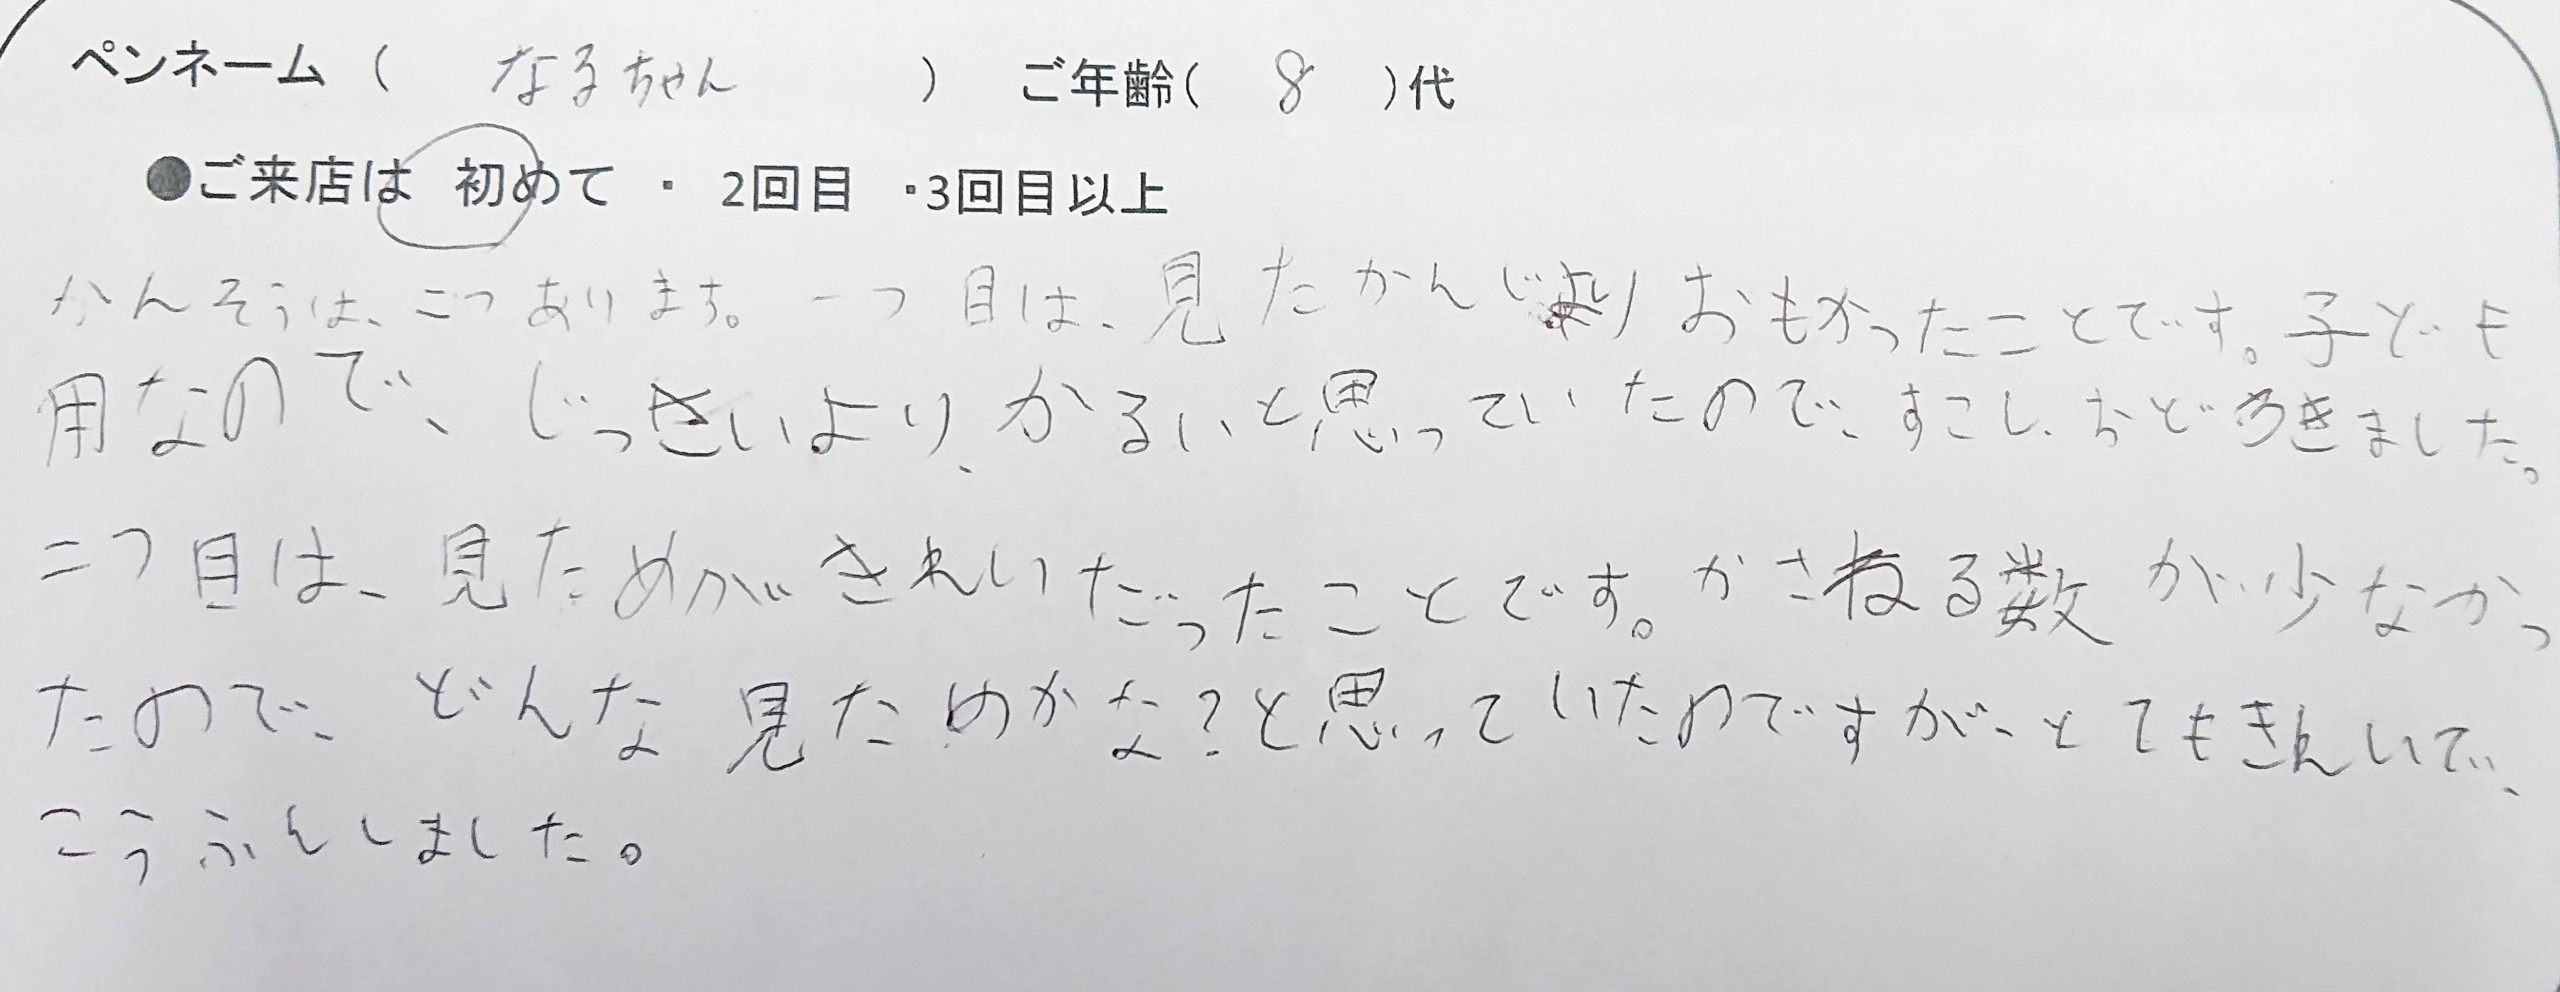 ペンネーム( なるちゃん ) ご年齢( 8 )代
●ご来店は 初めて ・ 2回目 ・3回目以上
かんそうは、二つあります。一つ目は、見たかんじよりおもかったことです。子ども
用なので、じっさいより、かるいと思っていたので、すこし、おどろきました。
二つ目は、見ためがきれいだったことです。かさねる数が少なかっ
たので、どんな見ためかな?と思っていたのですが、とてもきれいで、
こうふんしました。